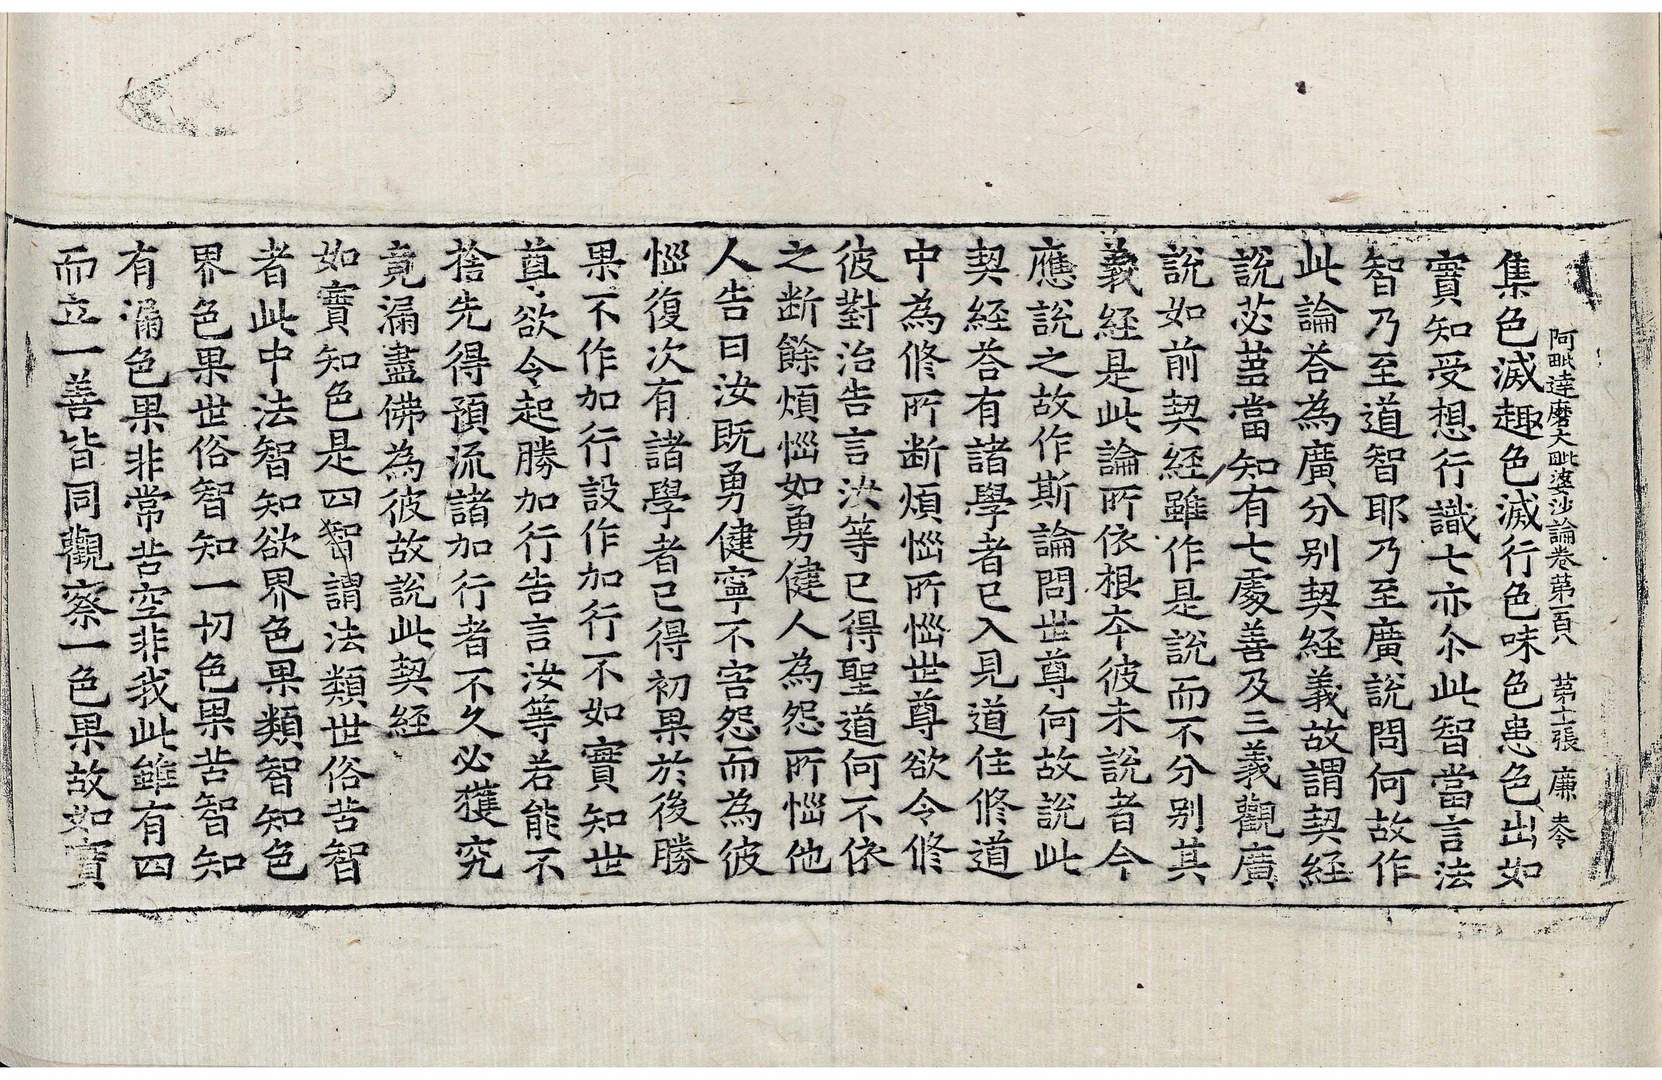 阿毗達磨大毗婆沙論卷第一百八　第十張　廉
集色滅趣色滅行色味色患色出如
實知受想行識七亦尒此智當言法
智乃至道智耶乃至廣說問何故作
此論荅為廣分别契經義故謂契經
說苾芻當知有七處善及三義觀廣
說如前契經雖作是說而不分别其
義經是此論所依根夲彼未說者今
應說之故作斯論問世尊何故說此
契經荅有諸學者已入見道住修道
中為修所斷煩惱所惱世尊欲令修
彼對治告言汝等已得聖道何不依
之斷餘煩惱如勇健人為怨所惱他
人告曰汝既勇健寧不害怨而為彼
惱復次有諸學者已得初果於後勝
果不作加行設作加行不如實知世
尊欲令起勝加行告言汝等若能不
捨先得預流諸加行者不久必獲究
竟漏盡佛為彼故說此契經
如實知色是四智謂法類世俗苦智
者此中法智知欲界色果類智知色
界色果世俗智知一切色果苦智知
有漏色果非常苦空非我此雖有四
而立一善皆同觀察一色果故如實